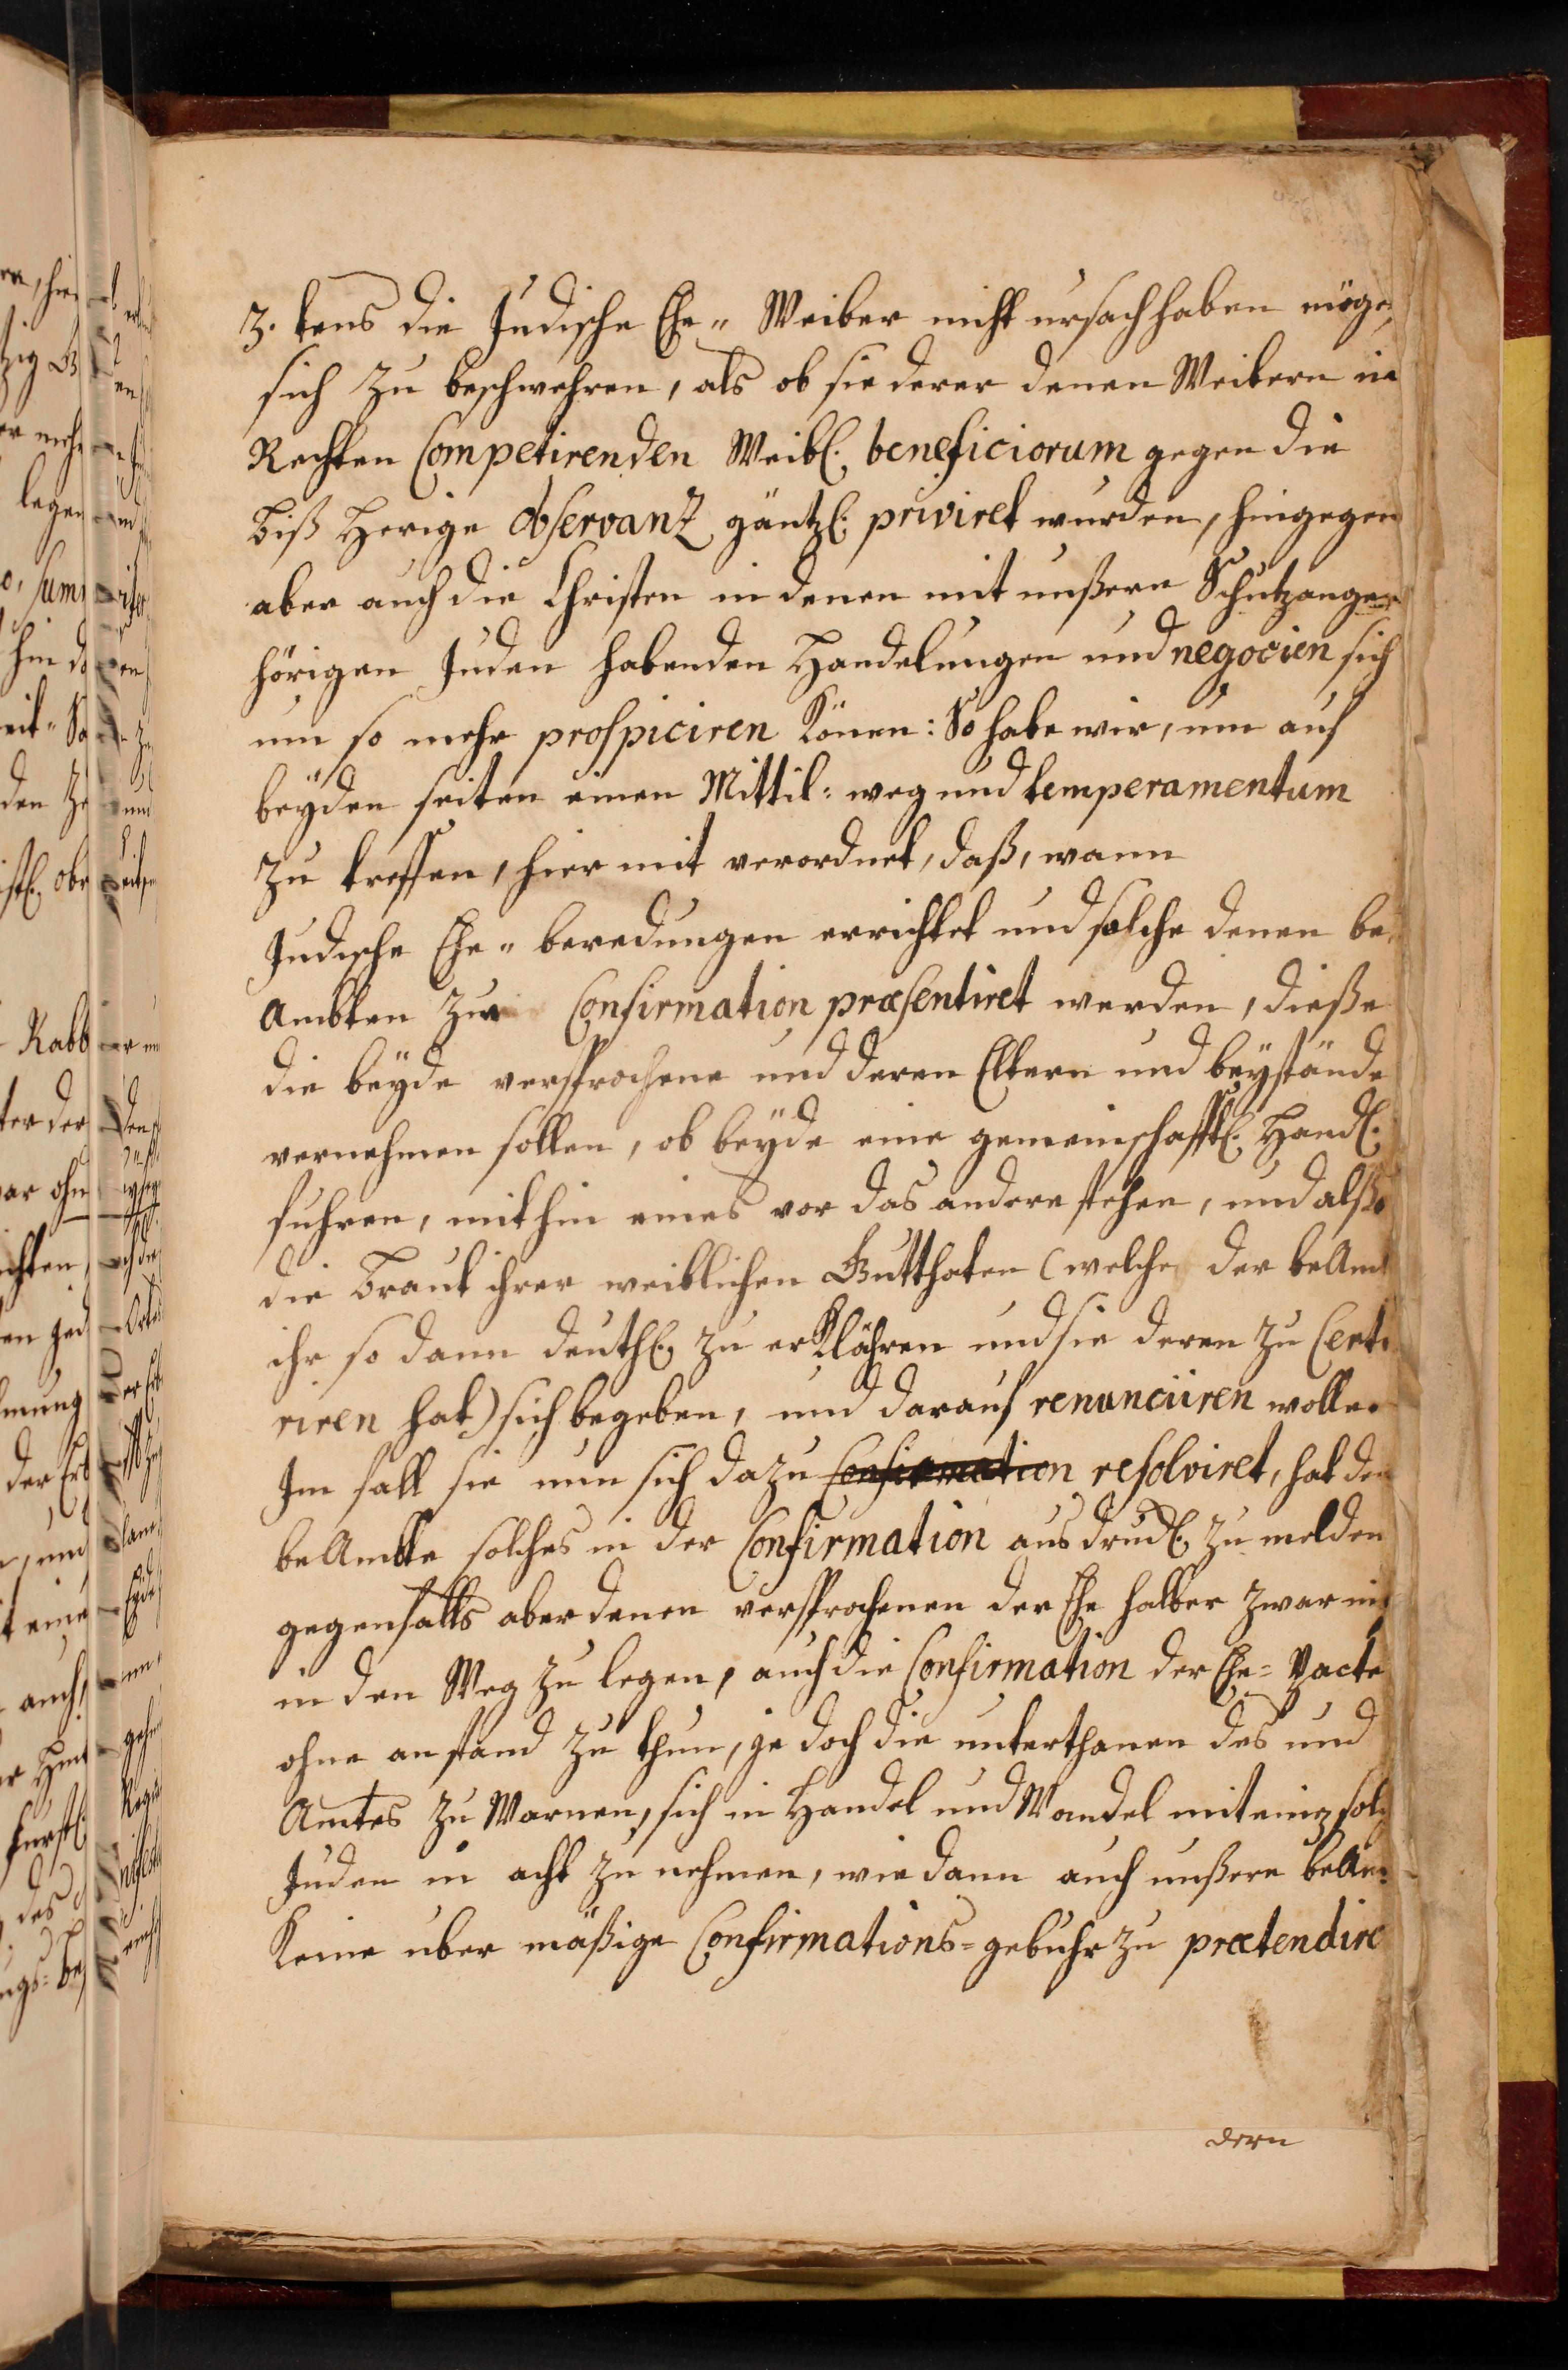 3. tens die Judische Ehe„ Weiber nicht ursach haben möge,
sich zu beschwehren, als ob sie derer denen Weibern in
Rechten Competirenden Weibl. beneficiorum gegen die
biß Herige observanz gäntzl. priviret wurden, hingegen
aber auch die Christen in denen mit unßern Schutzange
hörigen Juden habenden Handelungen und negocien sich
um so mehr prospiciren können: So habe wir, um auf
beyden seiten einen Mittil: weg und temperamentum
zu treffen, hier mit verordnet, daß, wann
Judische Ehe„ beredungen errichtet und solche denen be
Ambten zur Confirmation præsentiret werden, dieße
die beyde versprochene und deren Eltern und beystände
vernehmen sollen, ob beyde eine gemeinschafftl. Handl.
fuhren, mithin eines vor das andere stehen, und alßo
die Braut ihrer weiblichen Gutthaten (welche der beAmt
ihr so dann deuthl. zu erklähren und sie deren zu Certi
riren hat) sich begeben, und darauf renunciiren wolle.
Im fall sie nun sich dazu Confirmation resolviret, hat der
beAmbte solches in der Confirmation ausdruckl. zu melden
gegenfalls aber denen versprochenen der Ehe halber zwar ni
in den Weg zu legen, auch die Confirmation der Ehe= Pacte
ohne anstand zu thun, je doch die unterthanen des und
Amtes zu Warnen, sich in Handel und Wandel mit solch
Juden in acht zu nehmen, wie dann auch unßere beAm
Keine uber mäßige Confirmations= gebuhr zu prætendire
dern